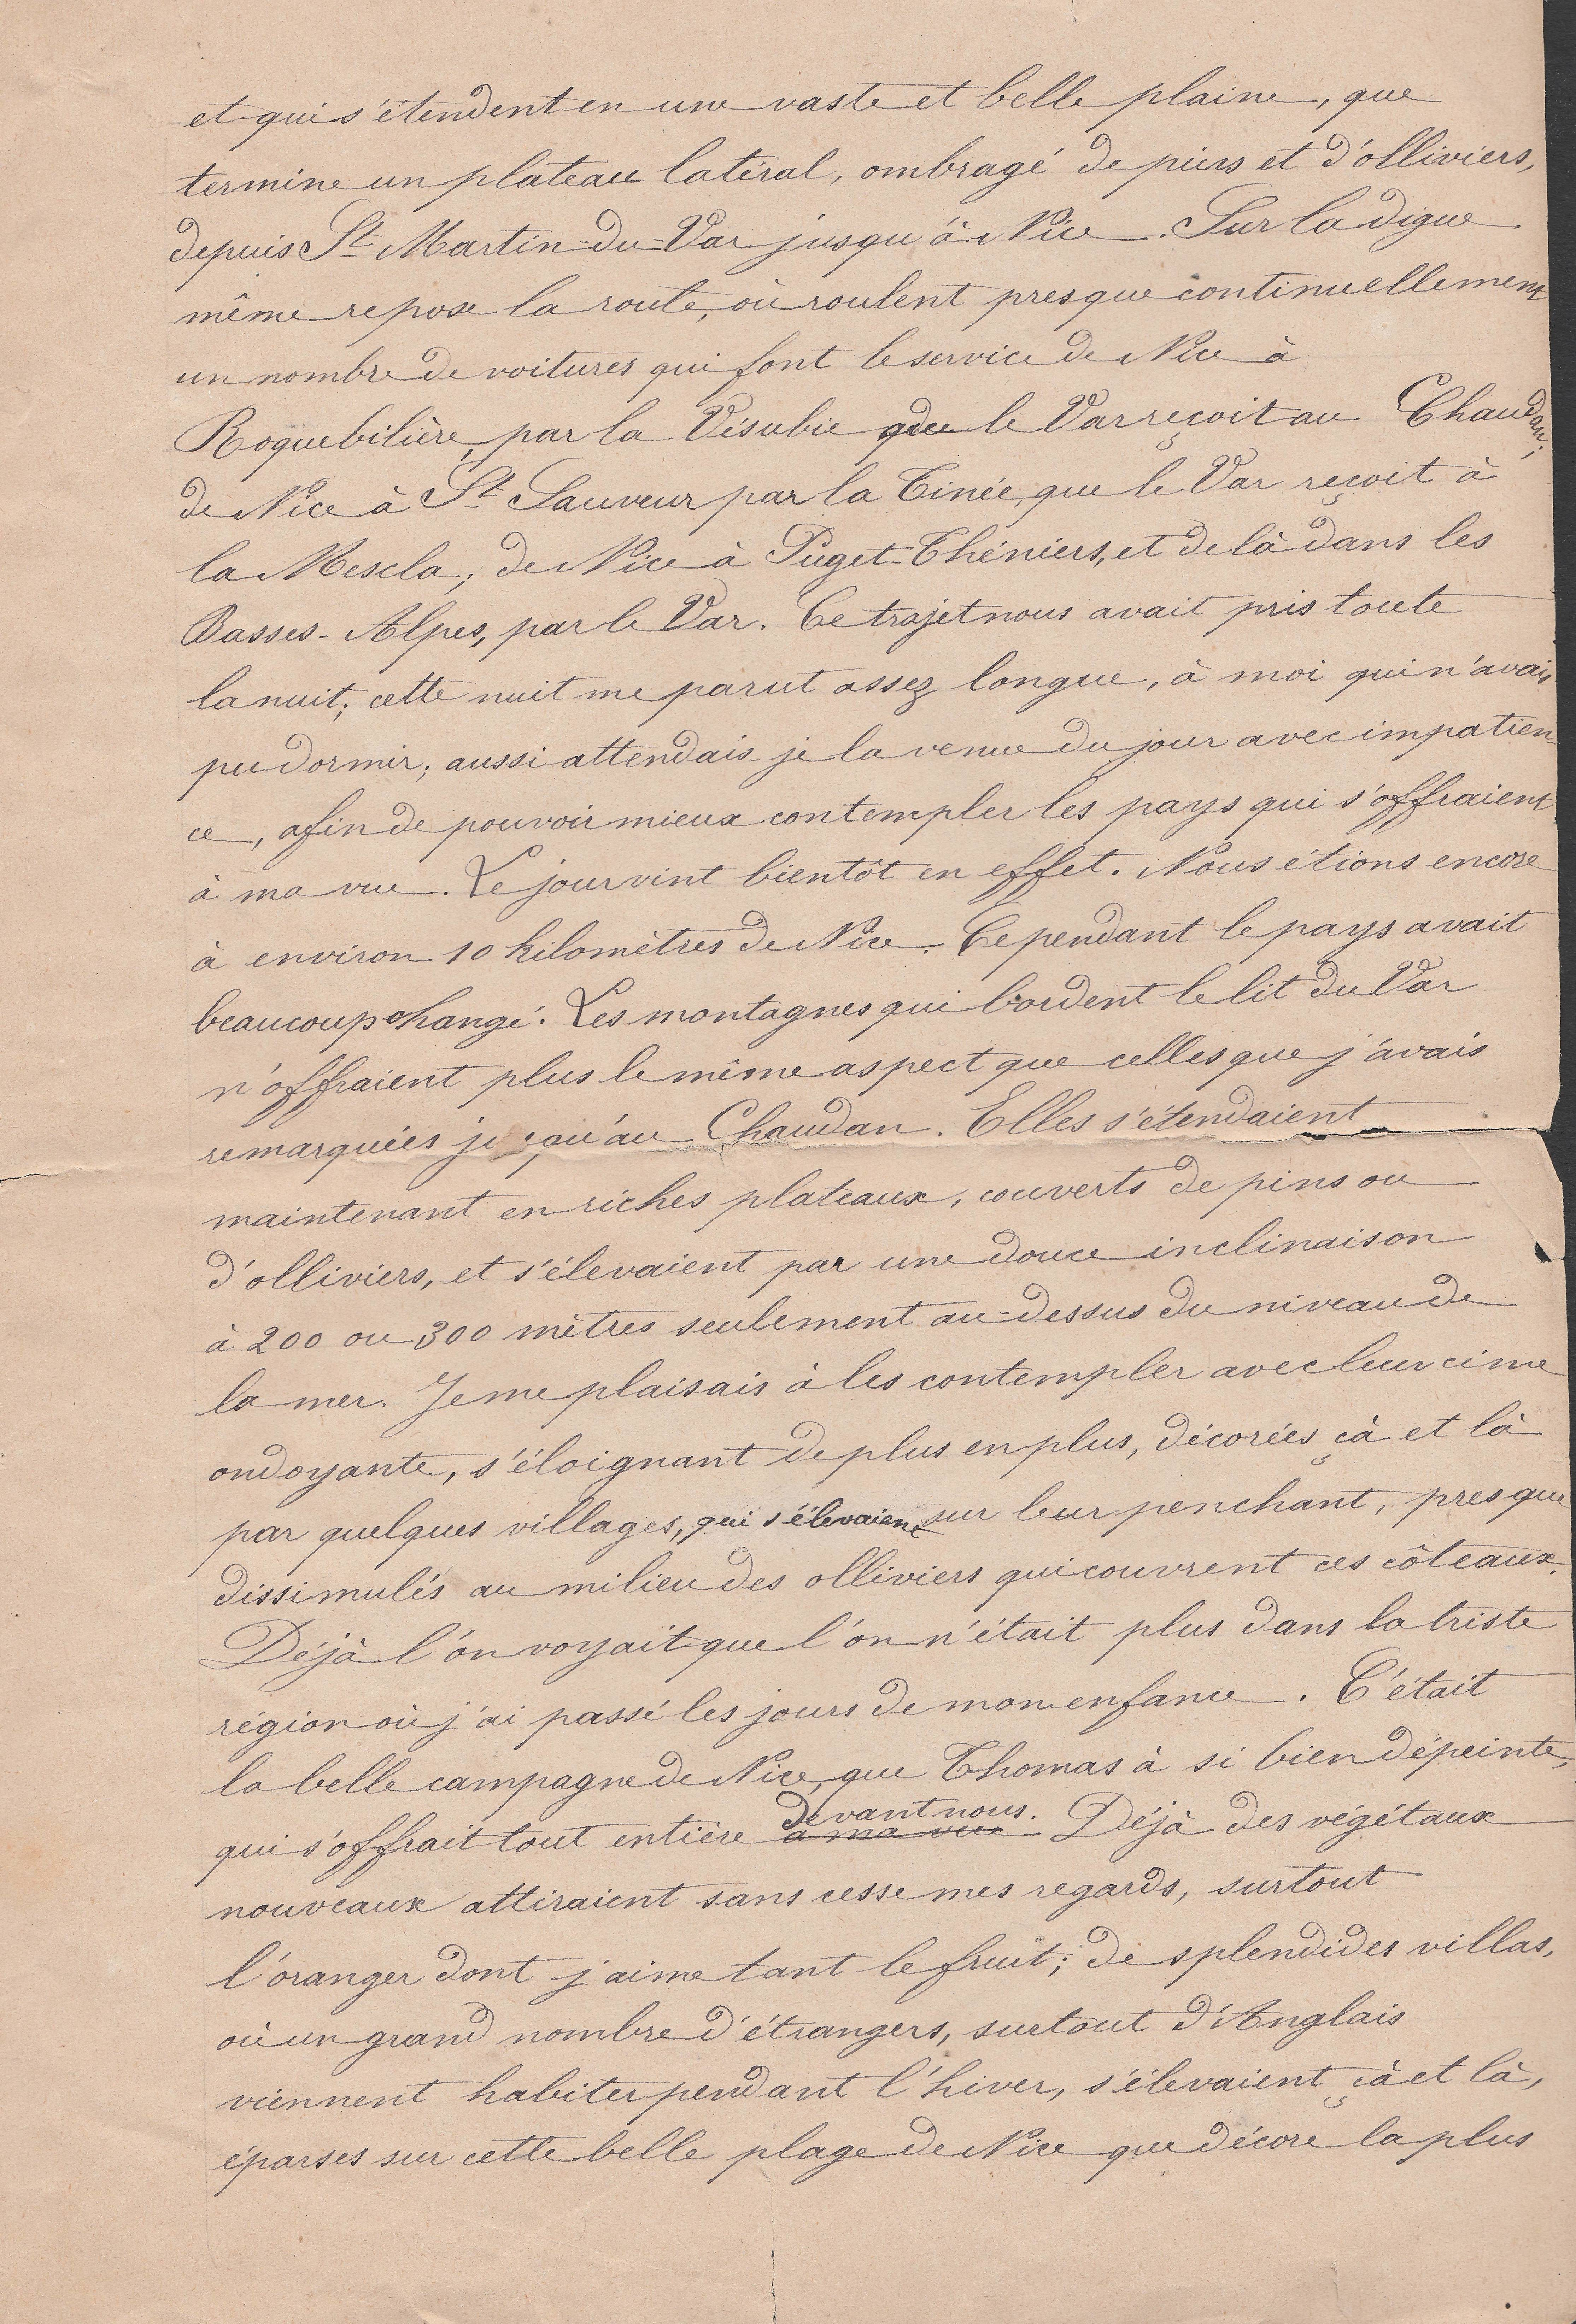 et qui s'étendent en une vaste et belle plaine, que
termine un plateau latéral, ombragé de pins et d'olliviers,
depuis St Martin-du-Var jusqu'à Nice. Sur la digue
même repose la route, où roulent presque continuellement
un nombre de voitures qui font le service de Nice à
Roquebilière, par la Vésubie que le Var reçoit au Chaudan;
de Nice à St Sauveur par la Tinée, que le Var reçoit à
la Mescla; de Nice à Puget-Théniers, et de là dans les
Basses-Alpes, par le Var. Ce trajet nous avait pris toute
la nuit; cette nuit me parut assez longue, à moi qui n'avais
pu dormir; aussi attendais-je la venue du jour avec impatien-
ce, afin de pouvoir mieux contempler les pays qui s'offraient
à ma vue. Le jour vint bientôt en effet. Nous étions encore
à environ 10 kilomètres de Nice. Cependant le pays avait
beaucoup changé. Les montagnes qui bordent le lit du Var
n'offraient plus le même aspect que celles que j'avais
remarquées jusqu'au Chaudan. Elles s'étendaient
maintenant en riches plateaux, couverts de pins ou
d'olliviers, et s'élevaient par une douce inclinaison
à 200 ou 300 mètres seulement au-dessus du niveau de
la mer. Je me plaisais à les contempler avec leur cime
ondoyante, s'éloignant de plus en plus, décorées çà et là
par quelques villages, qui s'élevaient sur leur penchant, presque
dissimulés au milieu des olliviers qui couvrent ces côteaux.
Déjà l'on voyait que l'on n'était plus dans la triste
région où j'ai passé les jours de mon enfance. C'était
la belle campagne de Nice, que Thomas à si bien dépeinte,
devant nous.
qui s'offrait tout entière à ma vue Déjà des végétaux
nouveaux attiraient sans cesse mes regards, surtout
l'oranger dont j'aime tant le fruit; de splendides villas,
où un grand nombre d'étrangers, surtout d'Anglais
viennent habiter pendant l'hiver, s'élevaient çà et là,
éparses sur cette belle plage de Nice que décore la plus